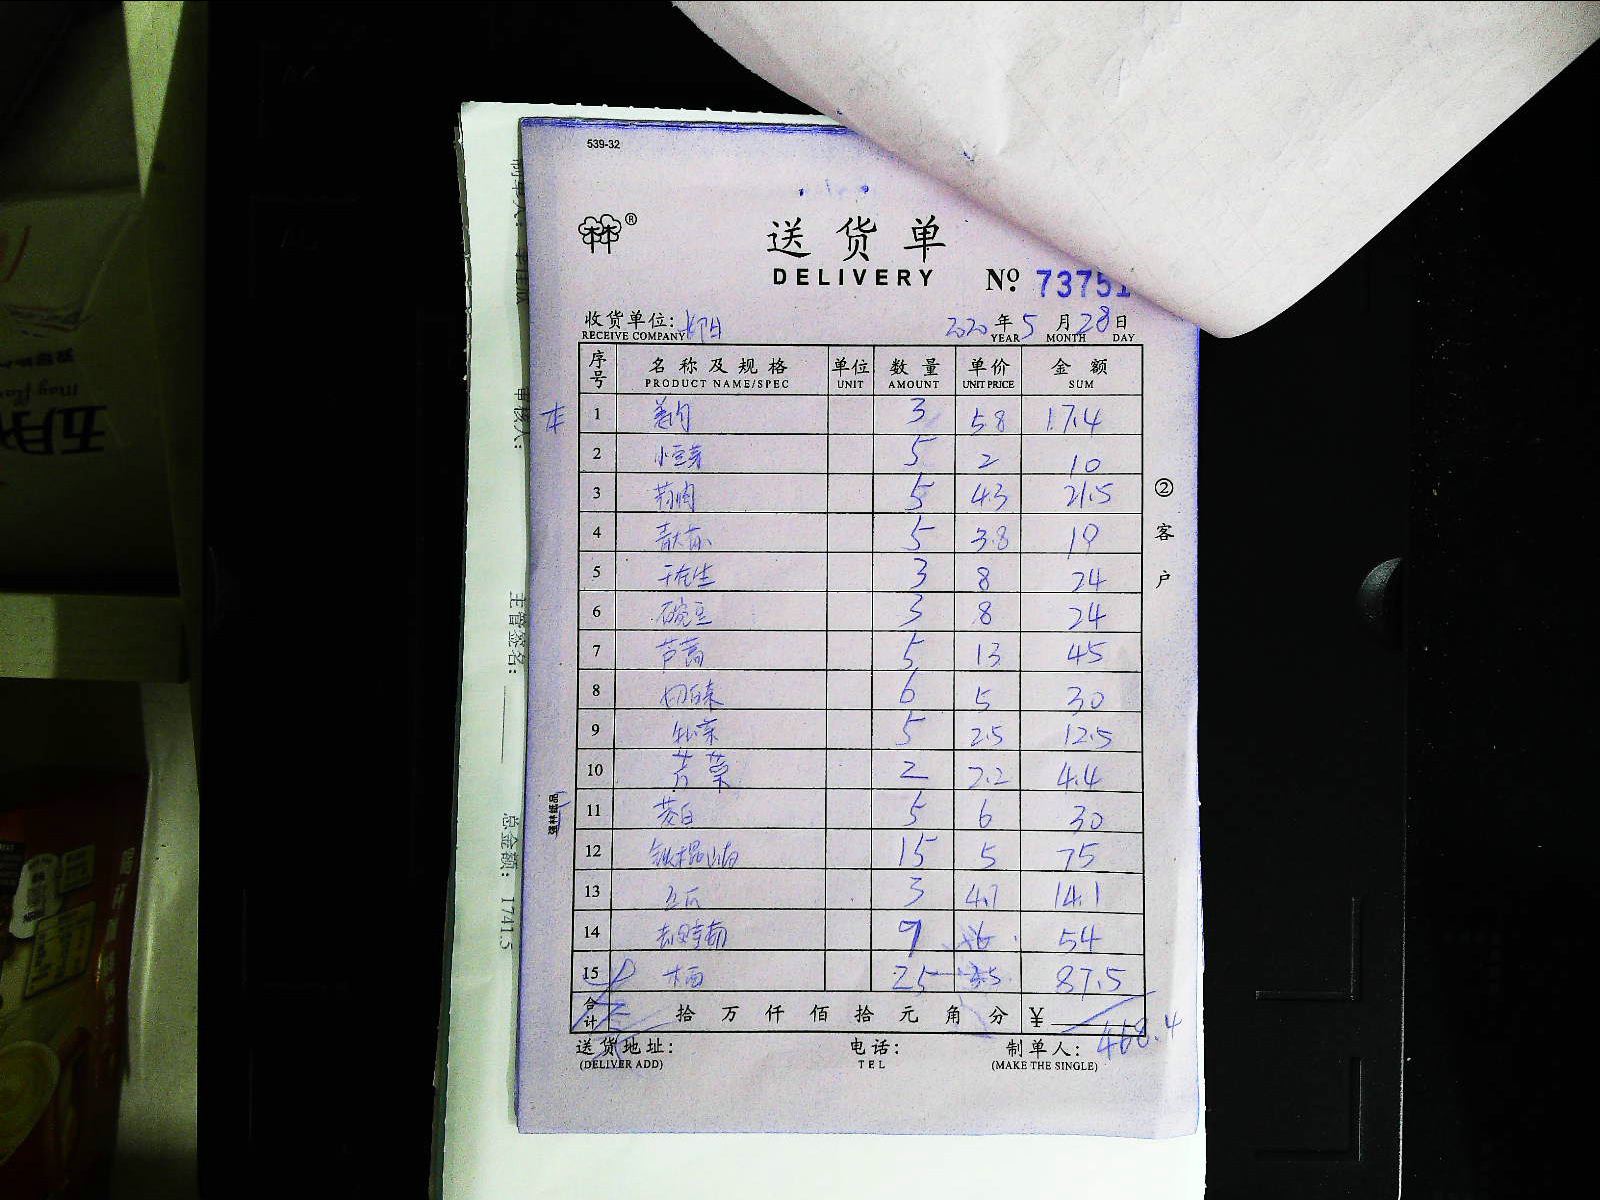 539-32
® 送货单
DELIVERY № 73751
收货单位: 2020年5月28日
RECEIVE COMPANY YEAR MONTH DAY
序号 名称及规格 单位 数量 单价 金额
PRODUCT NAME/SPEC UNIT AMOUNT UNIT PRICE SUM
1 姜肉 3 5.8 17.4
2 小豆芽 5 2 10
3 5 4.3 21.5
4 5 3.8 19
5 干花生 3 8 24
6 豌豆 3 8 24
7 芦蒿 5 13 45
8 6 5 30
9 生菜 5 2.5 12.5
10 芹菜 2 2.2 4.4
11 茭白 5 6 30
12 铁棍山药 15 5 75
13 3 4.7 14.1
14 9 6 54
15 25 3.5 87.5
合计 拾万仟佰拾元角分 ¥ 468.4
送货地址: 电话: 制单人:
(DELIVER ADD) TEL (MAKE THE SINGLE)
②客户
强林纸品
审核人:
主管签名:
总金额: 1741.5
五月
may flo